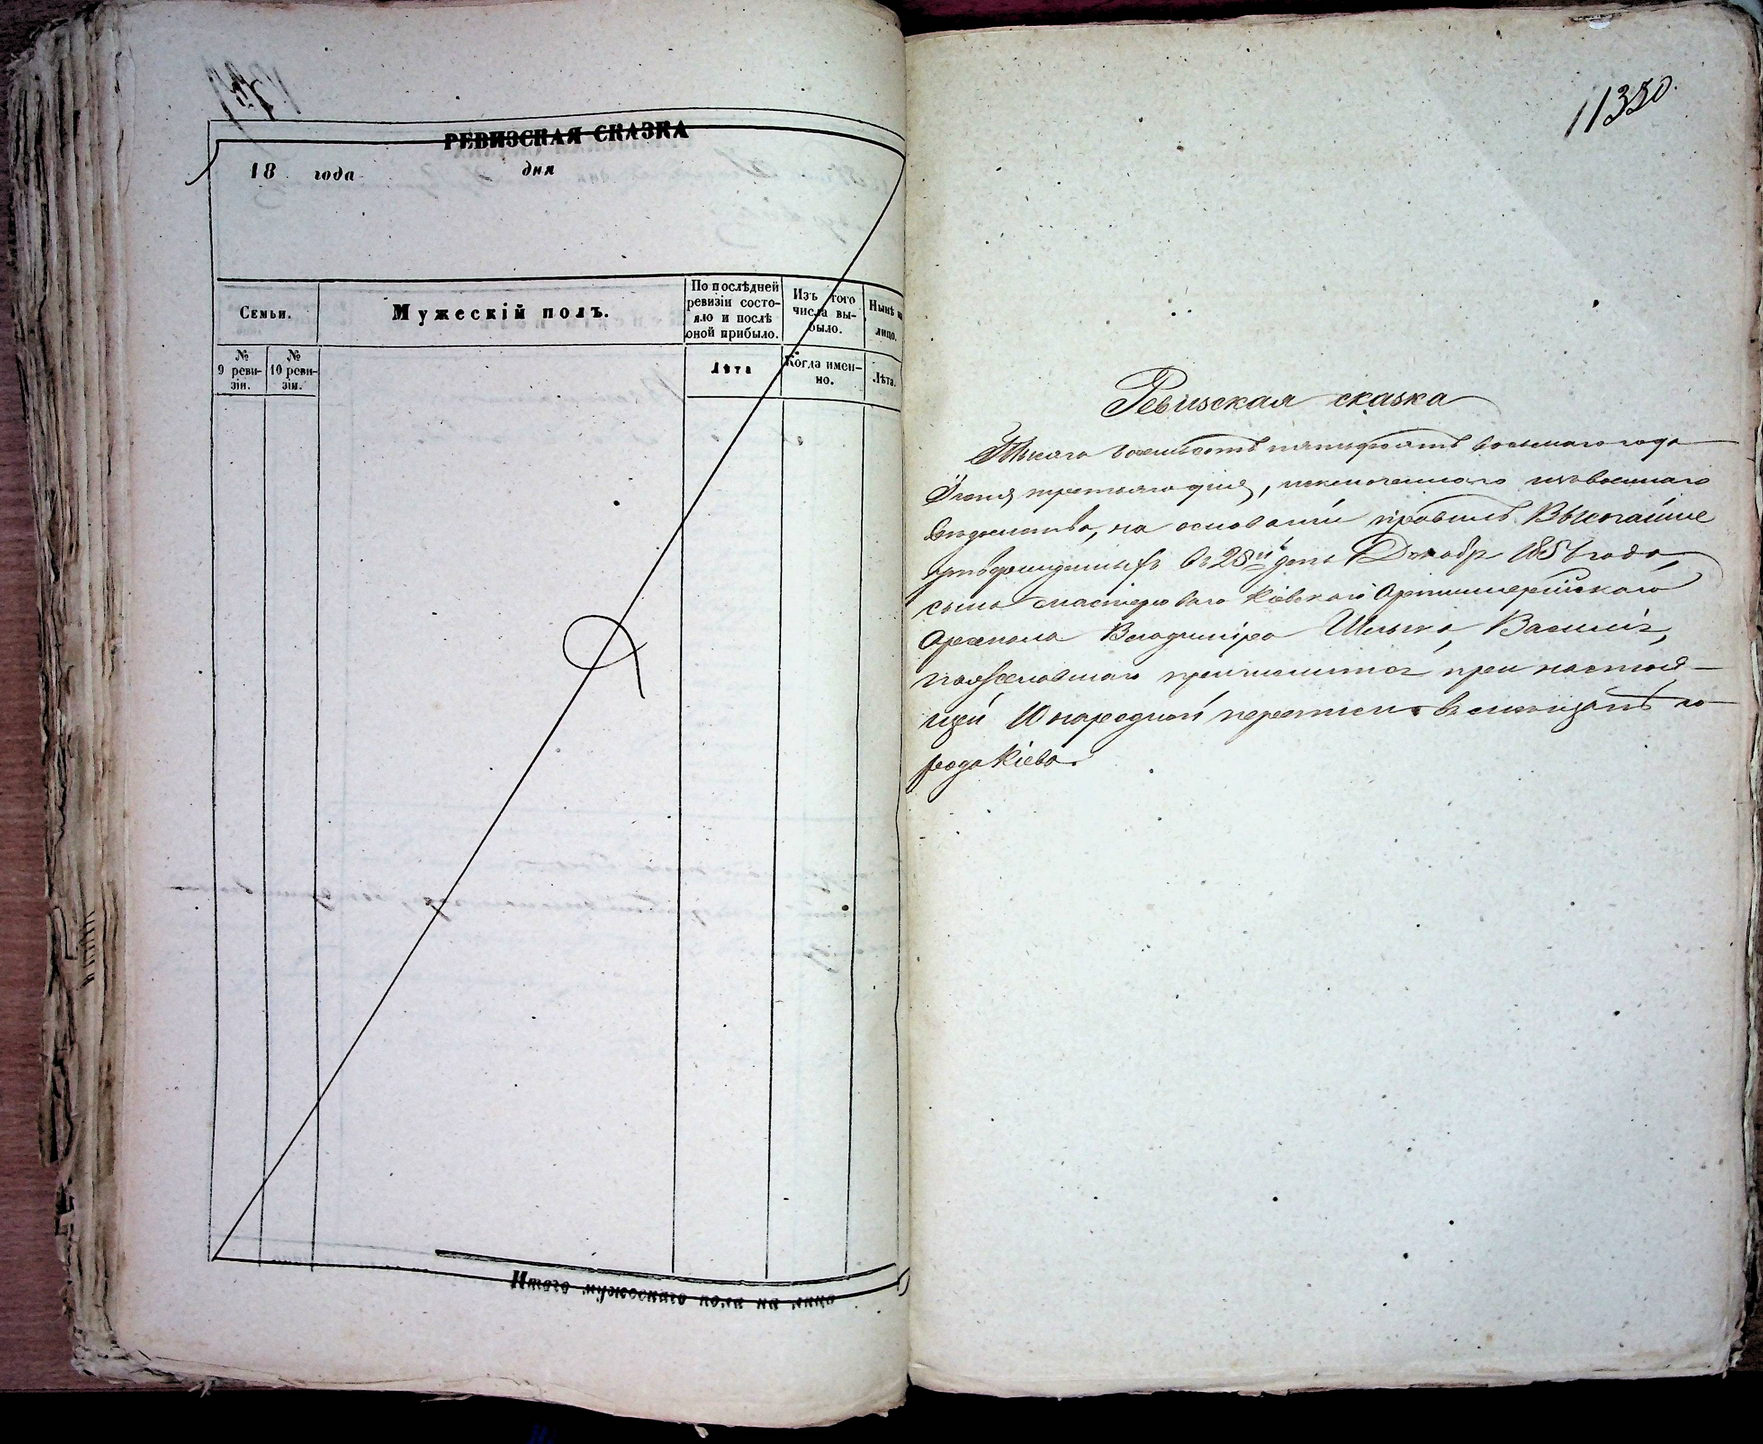 РЕВИЗСКАЯ СКАЗКА
18 года дня
Семьи.
Мужескій полъ.
По послѣдней
ревизіи состо-
яло и послѣ
оной прибыло.
Изъ того
числа вы-
было.
Нынѣ на
лицо.
№
9 реви-
зіи.
№
10 реви-
зіи.
Лѣта
Когда имен-
но.
Лѣта.
Итого мужескаго пола на лицо
11350.
Ревизская сказка
Тысяча восемьсотъ пятьдесятъ восьмаго года
Іюня третьяго дня, исключеннаго изъ военнаго
вѣдомства, на основаніи правилъ Высочайше
утвержденныхъ въ 25й день Декабр 1856 года,
сына мастероваго Кіевскаго Артиллерійскаго
Арсенала Владиміра Василія,
пожелавшаго причислится при настоя-
щей 10 народной переписи въ мѣщане го-
рода Кіева.